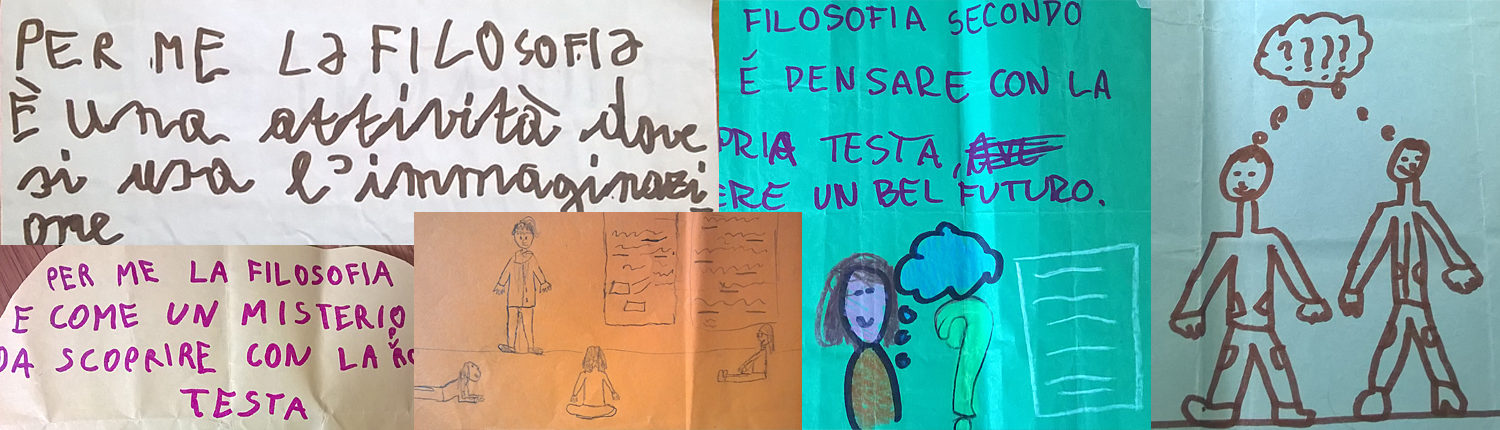 PER ME La FILOSOFIA
È una attività dove
si usa l'immaginazi
one
FILOSOFIA SECONDO
É PENSARE CON LA
PRIA TESTA,
ERE UN BEL FUTURO.
PER ME LA FILOSOFIA
E COME UN MISTERIO
DA SCOPRIRE CON LA
TESTA
????